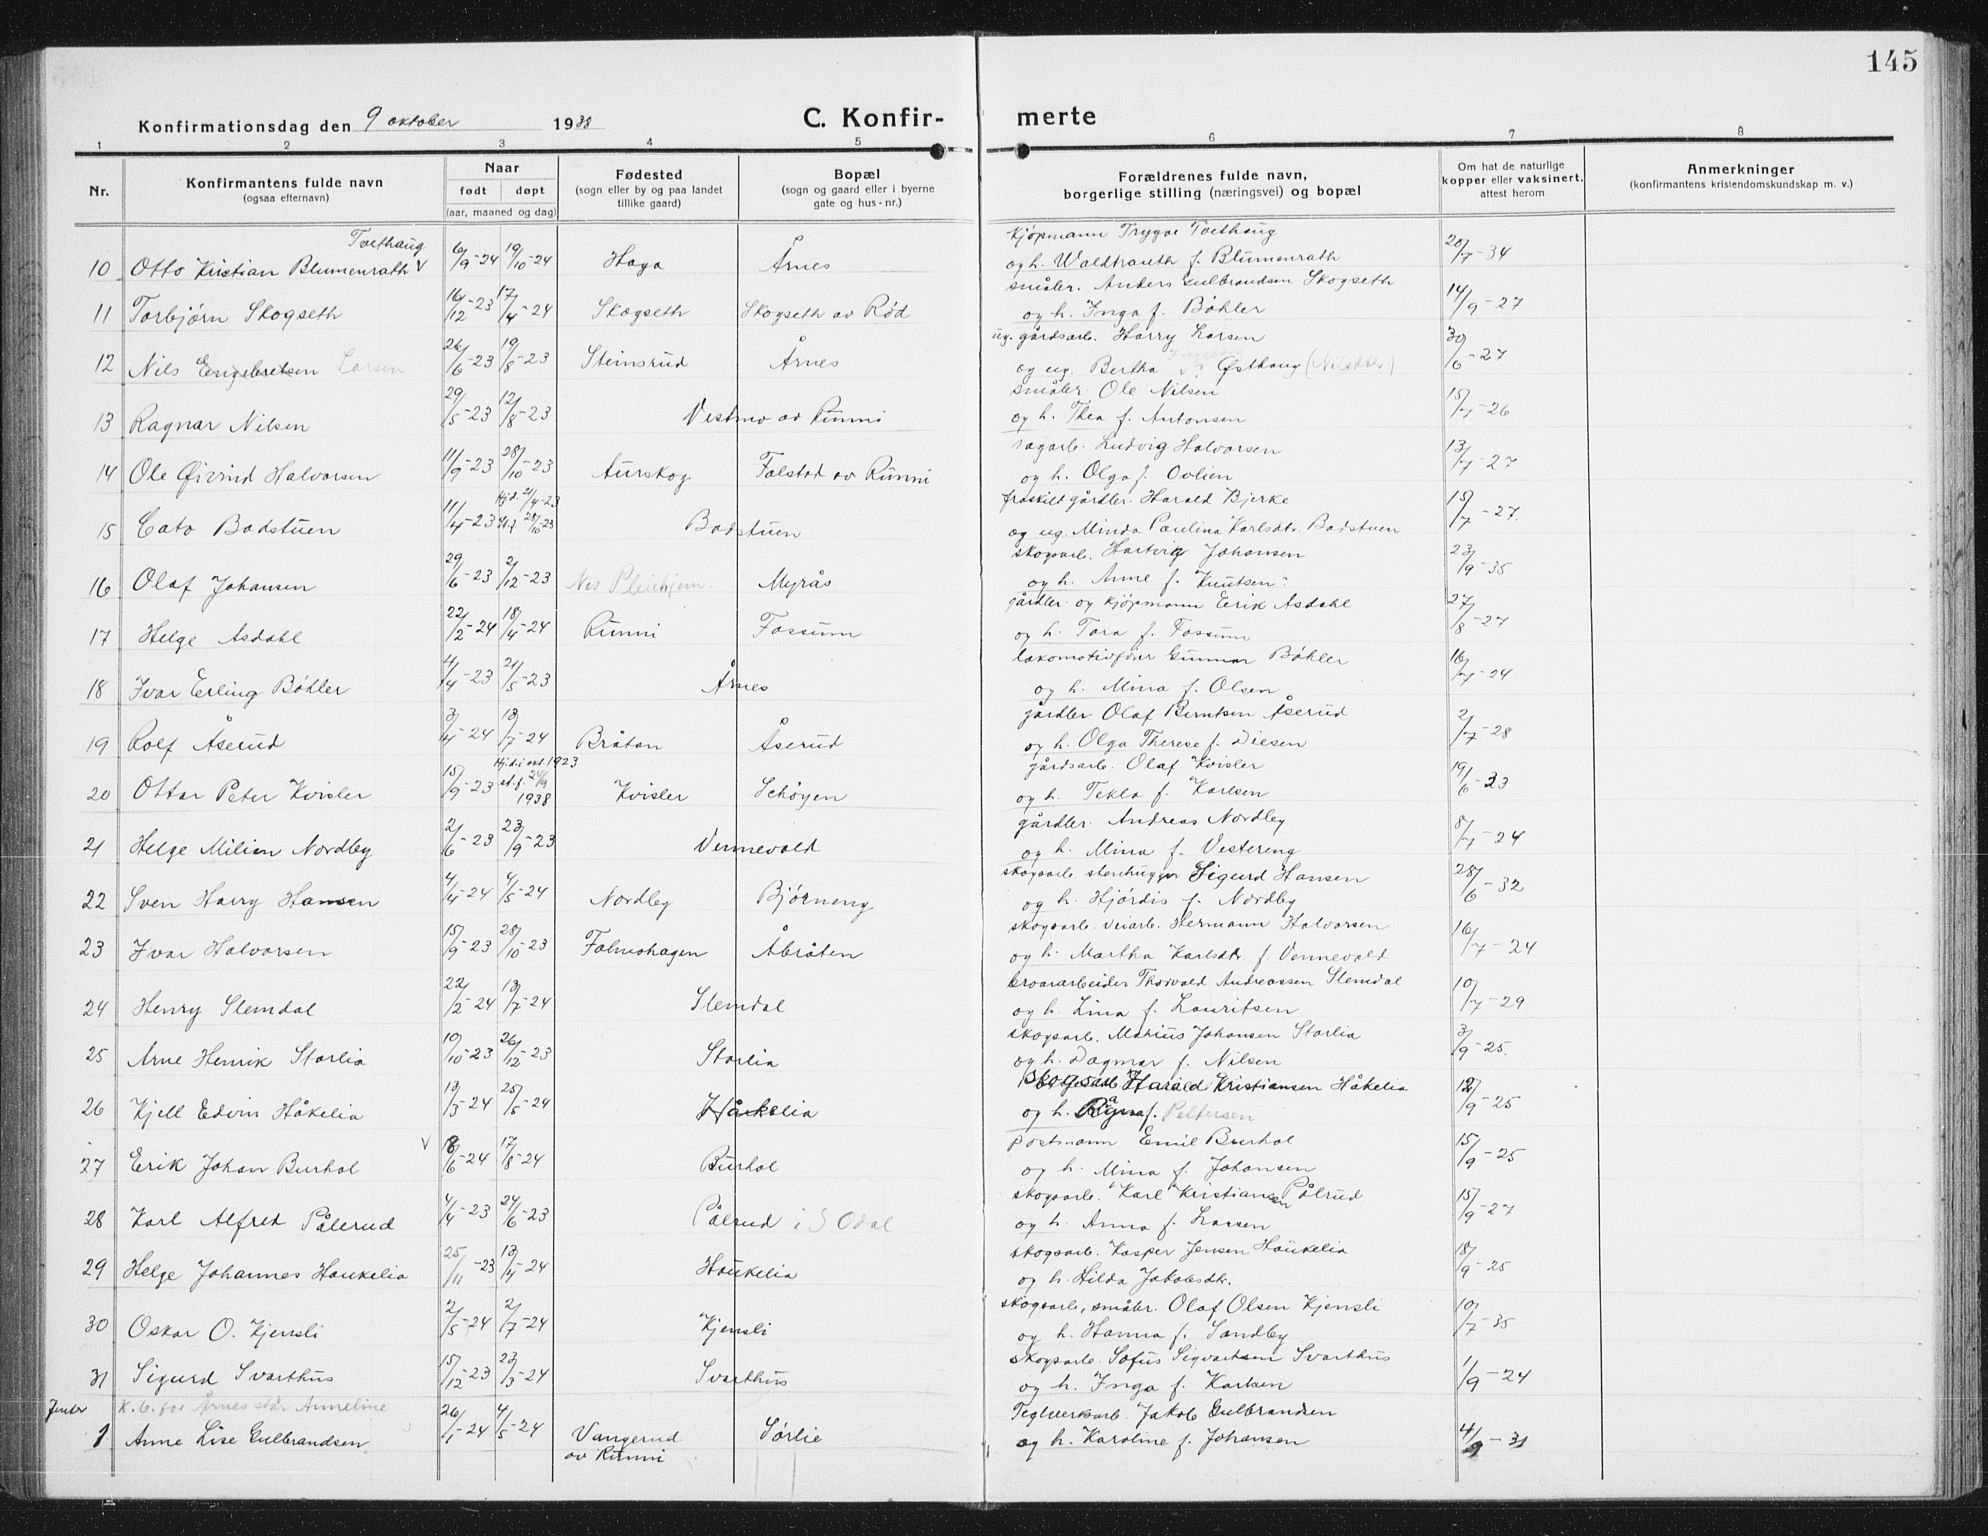 145
Konfirmationsdag den 9 oktober 1938
C. Konfir- merte
1 2 3 4 5 6 7 8
Nr.
Konfirmantens fulde navn
(ogsaa efternavn)
Naar
født døpt
(aar, maaned og dag)
Fødested
(sogn eller by og paa landet
tillike gaard)
Bopæl
(sogn og gaard eller i byerne
gate og hus-nr.)
Forældrenes fulde navn,
borgerlige stilling (næringsvei) og bopæl
Om hat de naturlige
kopper eller vaksinert,
attest herom
Anmerkninger
(konfirmantens kristendomskundskap m. v.)
Tvethaug kjøpmann Trygve Tvethaug
10 Otto Kristian Blumenrath V 6/9-24 19/10-24 Haga Årnes og h. Waldtrauth f. Blumenrath 20/7-34
småbr. Anders Gulbrandsen Skogseth
11 Torbjørn Skogseth 16/12-23 17/4-24 Skogseth Skogseth av Rød og h. Inga f. Bøhler 14/9-27
ug. gårdsarb. Harry Larsen
12 Nils Engebretsen Larsen 26/6-23 19/8-23 Steinsrud Årnes og ug. Bertha Østhaug (Nilsdtr.) 30/6-27
småbr. Ole Nilsen
13 Ragnar Nilsen 29/5-23 12/8-23 Vestmo av Runni og h. Thea f. Antonsen 15/7-26
sagarb. Ludvig Halvorsen
14 Ole Øivind Halvorsen 11/9-23 28/10-23 Aurskog Falstad av Runni og h. Olga f. Ovlien 13/7-27
Hjd. 21/4-23 fraskilt gårdbr. Harald Bjerke
15 Cato Badstuen 11/4-23 28/10-23 Badstuen og ug. Minda Paulina Karlsdtr. Badstuen 15/7-27.
skogsarb. Hartvig Johansen
16 Olaf Johansen 29/6-23 2/12-23 Nes Pleiehjem. Myrås og h. Anne f. Knutsen 23/9-35
gårdbr. og kjøpmann Erik Asdahl
17 Helge Asdahl 22/2-24 18/4-24 Runni Fossum og h. Tora f. Fossum 27/8-27
lokomotivfører Gunnar Bøhler
18 Ivar Erling Bøhler 4/4-23 21/5-23 Årnes og h. Mina f. Olsen 16/7-24
gårdbr. Olaf Berntsen Åserud
19 Rolf Åserud 3/4-24 13/7-24 Bråtan Åserud og h. Olga Therese f. Diesen 2/7-28
Hjd. i okt. 1923 gårdsarb. Olaf Kvisler
20 Ottar Peter Kvisler 15/9-23 st.f. 24/9 1938 Kvisler Schøyen og h. Tekla f. Karlsen 19/6-33
gårdbr. Andreas Nordby
21 Helge Milian Nordby 2/6-23 23/9-23 Vennevold og h. Mina f. Vestereng 8/7-24
skogsarb. stenhugger Sigurd Hansen
22 Sven Harry Hansen 4/4-24 4/5-24 Nordby Bjørneng og h. Hjørdis f. Nordby 28/6-32
skogsarb. veiarb. Hermann Halvorsen
23 Ivar Halvorsen 15/9-23 28/10-23 Falmohagen Åbråten og h. Martha Karlsdtr. f. Vennevold 16/7-24
broarbeider Thorvald Andreassen Slemdal
24 Henry Slemdal 22/2-24 13/7-24 Slemdal og h. Lina f. Lauritsen 10/7-29
skogsarb. Marius Johansen Storlia
25 Arne Henrik Storlia 10/10-23 26/12-23 Storlia og h. Dagmar f. Nilsen 3/9-25.
skogsarb. Harald Kristiansen Håkelia
26 Kjell Edvin Håkelia 13/3-24 25/5-24 Håkelia og h. Ragna f. Pettersen 12/9-25
postmann Emil Burhol
27 Erik Johan Burhol V 8/6-24 17/8-24 Burhol og h. Mina f. Johansen 15/9-25
skogsarb. Karl Kristiansen Pålrud
28 Karl Alfred Pålerud 4/4-23 24/6-23 Pålrud i S. Odal og h. Anna f. Larsen 15/9-27
skogsarb. Kasper Jensen Haukelia
29 Helge Johannes Haukelia 25/11-23 13/4-24 Haukelia og h. Hilda Jakobsdtr. 18/9-25
skogsarb., småbr. Olaf Olsen Kjensli
30 Oskar O. Kjensli 2/5-24 2/7-24 Kjensli og h. Hanna f. Sandby 10/7-35
skogsarb. Sofus Sigvartsen Svarthus
31 Sigurd Svarthus 15/12-23 23/3-24 Svarthus og h. Inga f. Karlsen 1/9-24
Jenter K.b. for Årnes står Anneline Teglverksarb. Jakob Gulbrandsen
1 Anne Lise Gulbrandsen 26/1-24 4/5-24 Vangerud av Runni Sørlie og h. Karoline f. Johansen 4/9-31